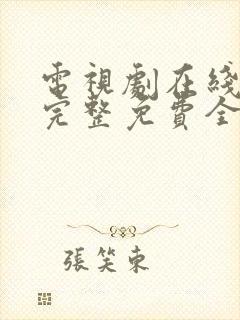 電視劇在綫
完整免費全
張笑東